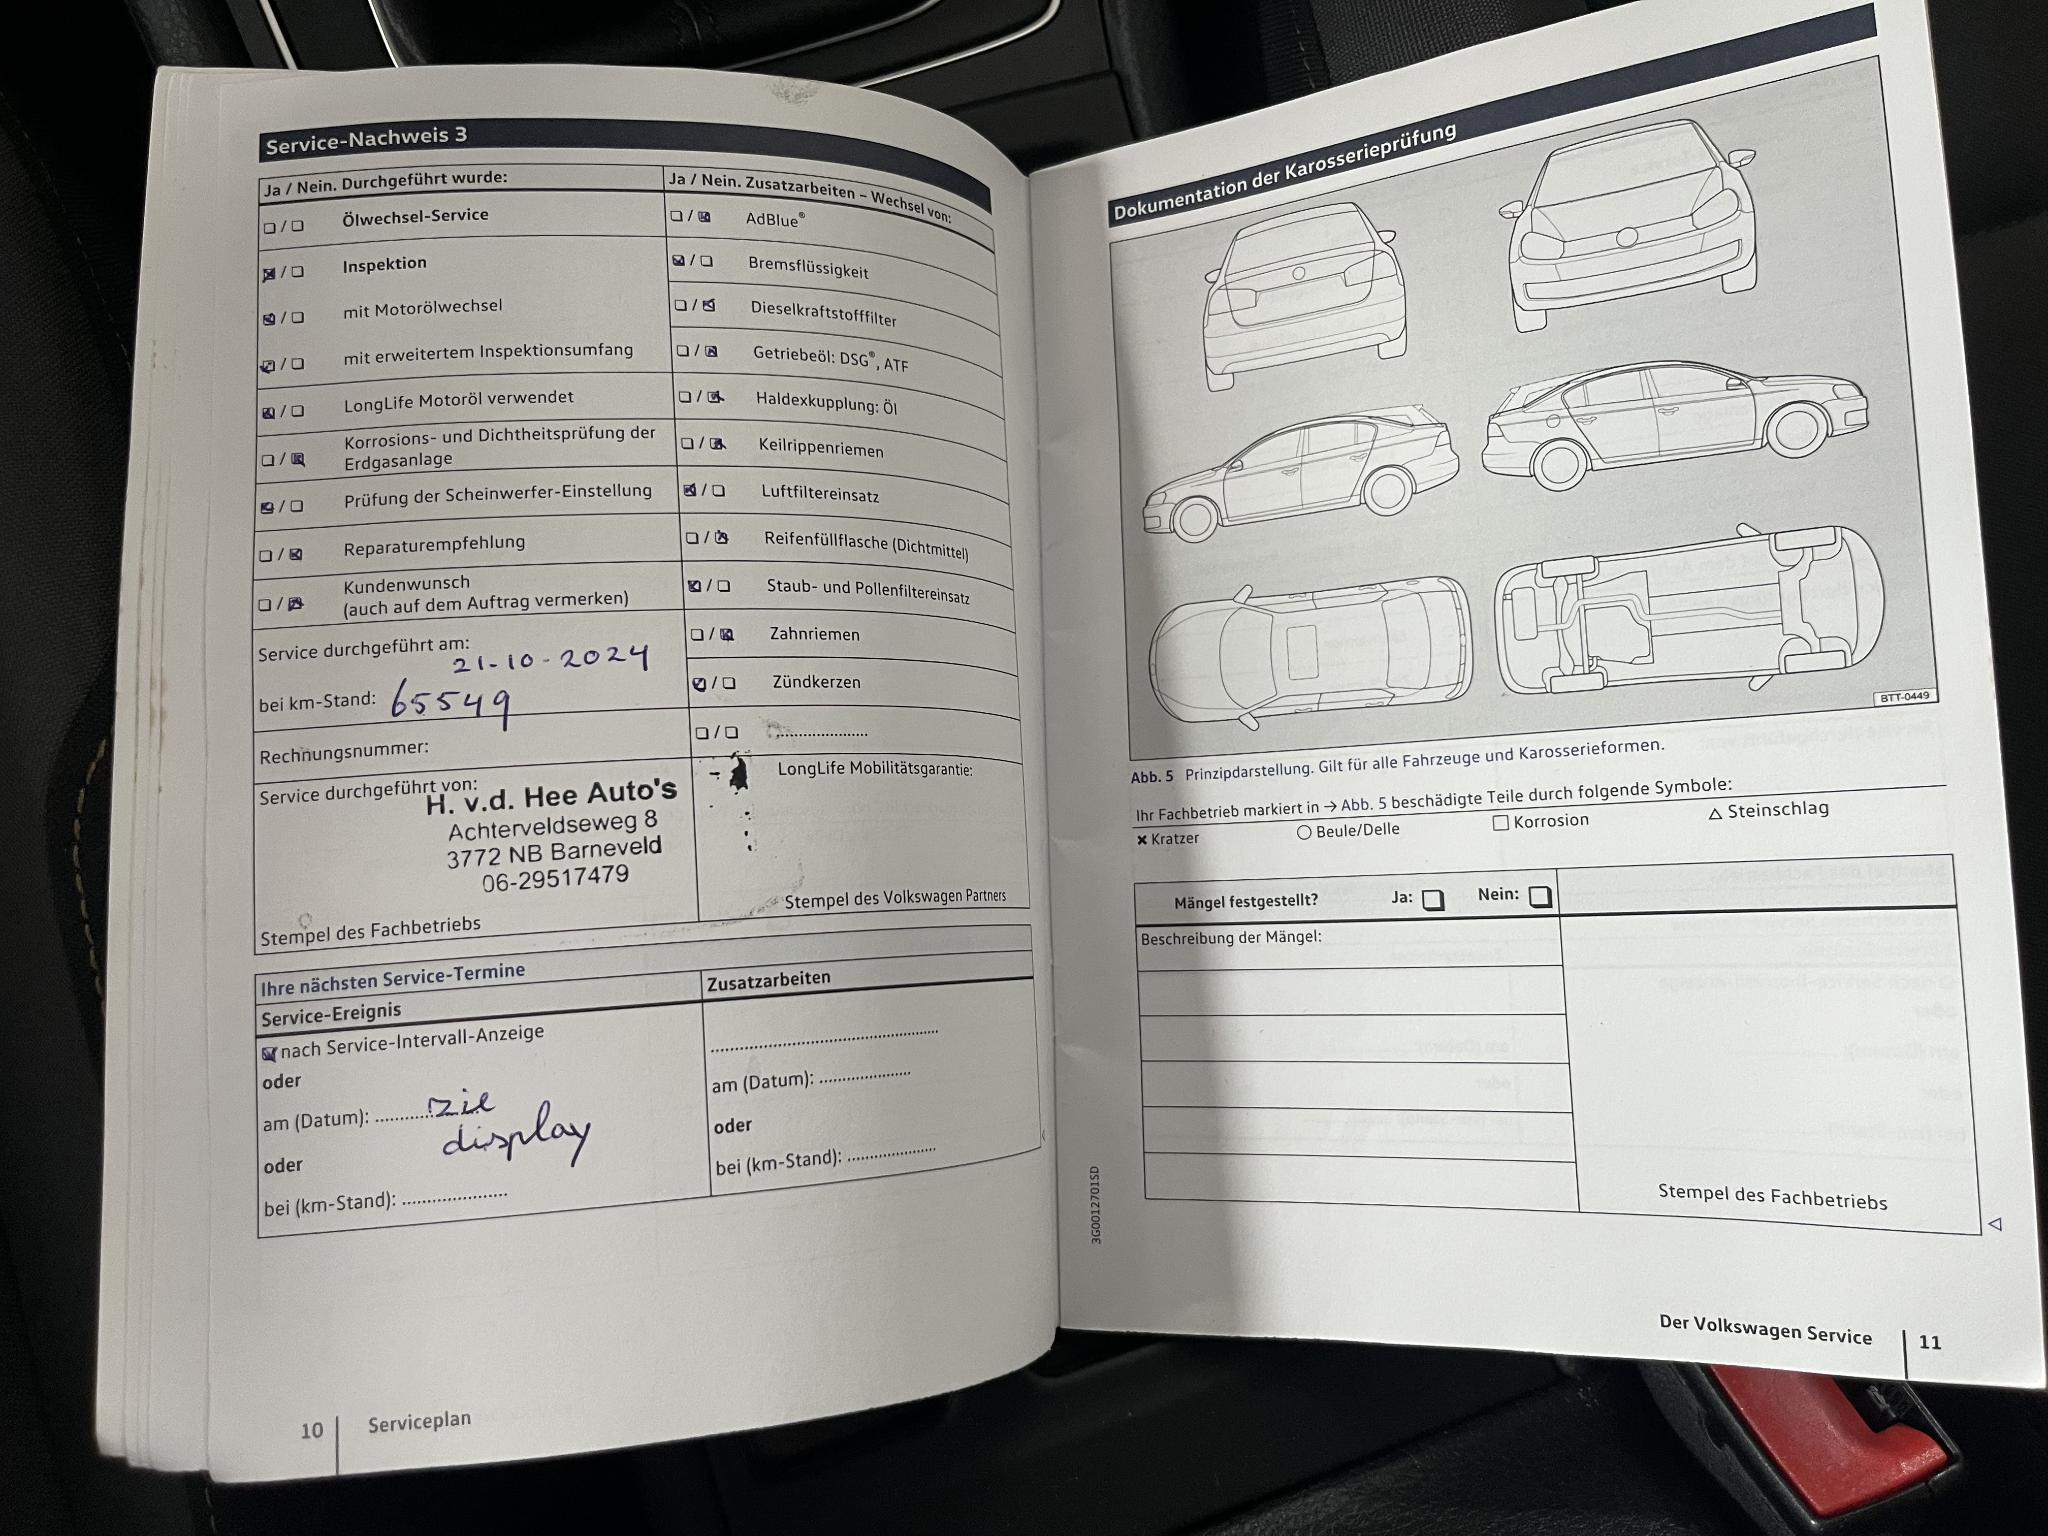 Service-Nachweis 3
Ja / Nein. Durchgeführt wurde:
☐ / ☐ Ölwechsel-Service
☒ / ☐ Inspektion
☒ / ☐ mit Motorölwechsel
☒ / ☐ mit erweitertem Inspektionsumfang
☒ / ☐ LongLife Motoröl verwendet
☐ / ☒ Korrosions- und Dichtheitsprüfung der
Erdgasanlage
☒ / ☐ Prüfung der Scheinwerfer-Einstellung
☐ / ☒ Reparaturempfehlung
☐ / ☒ Kundenwunsch
(auch auf dem Auftrag vermerken)
Service durchgeführt am:
21-10-2024
bei km-Stand: 65549
Rechnungsnummer:
Service durchgeführt von:
H. v.d. Hee Auto's
Achterveldseweg 8
3772 NB Barneveld
06-29517479
Stempel des Fachbetriebs
Ja / Nein. Zusatzarbeiten – Wechsel von:
☐ / ☒ AdBlue®
☒ / ☐ Bremsflüssigkeit
☐ / ☒ Dieselkraftstofffilter
☐ / ☒ Getriebeöl: DSG®, ATF
☐ / ☒ Haldexkupplung: Öl
☐ / ☒ Keilrippenriemen
☒ / ☐ Luftfiltereinsatz
☐ / ☒ Reifenfüllflasche (Dichtmittel)
☒ / ☐ Staub- und Pollenfiltereinsatz
☐ / ☒ Zahnriemen
☒ / ☐ Zündkerzen
☐ / ☐ ....................
LongLife Mobilitätsgarantie:
Stempel des Volkswagen Partners
Ihre nächsten Service-Termine
Service-Ereignis
☒ nach Service-Intervall-Anzeige
oder
am (Datum): .......... zie
display
oder
bei (km-Stand): ....................
Zusatzarbeiten
..........................................
am (Datum): .................
oder
bei (km-Stand): .................
10 Serviceplan
Dokumentation der Karosserieprüfung
BTT-0449
Abb. 5 Prinzipdarstellung. Gilt für alle Fahrzeuge und Karosserieformen.
Ihr Fachbetrieb markiert in → Abb. 5 beschädigte Teile durch folgende Symbole:
✖ Kratzer ○ Beule/Delle □ Korrosion △ Steinschlag
Mängel festgestellt? Ja: ☐ Nein: ☐
Beschreibung der Mängel:
Stempel des Fachbetriebs
3G0012701SD
Der Volkswagen Service 11